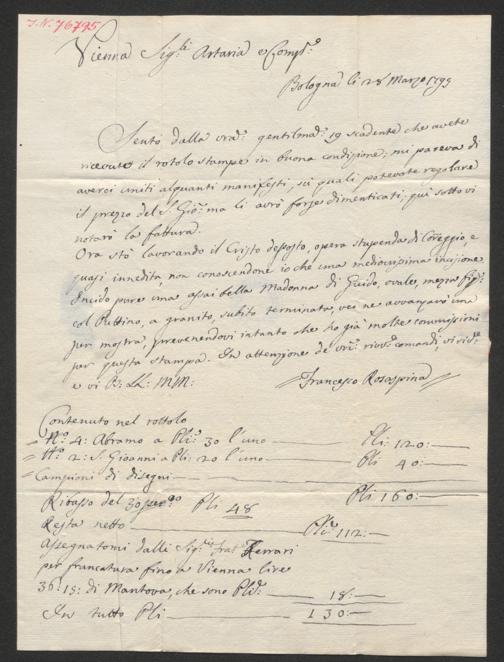 I.N. 76795
Vienna Sigli Artaria e Compo
Bologna li 28 Marzo 1795
Sento dalla vra gentilma 19 scadente che avete
ricevuto il rotolo stampe in buona condizione; mi pareva di
averci uniti alquanti manifesti, sù quali potevate regolare
il prezzo del S. Gio: ma li avrò forse dimenticati; quì sotto vi
noterò la fattura.
Ora stò lavorando il Cristo deposto, opera stupenda di Coreggio, e
quasi innedita, non conoscendone io che una mediocrissima incisione.
Incido pure una assai bella Madonna di Guido, ovale, mezza figa
col Puttino, a granito, subito terminata, ve ne avvanzarò una
per mostra, prevenendovi intanto che ho già molte commissioni
per questa stampa. In attenzione de vri rivmi comandi, vi
e vi B: LL: MM:
Francesco Rosaspina
Contenuto nel rottolo
No: 4: Abramo a Pli: 30 l'uno — Pli: 120:—
No: 2: S. Gioanni a Pli: 20 l'uno — Pli 40:—
Campioni di disegni —
Pli 160:—
Ribasso del 30 per %o Pli 48
Resta netto — Pli 112:—
Assegnatomi dalli Sigri frati Ferrari
per francatura fino a Vienna lire
36:15: di Mantova, che sono Pli — 18:—
In tutto Pli — 130:—